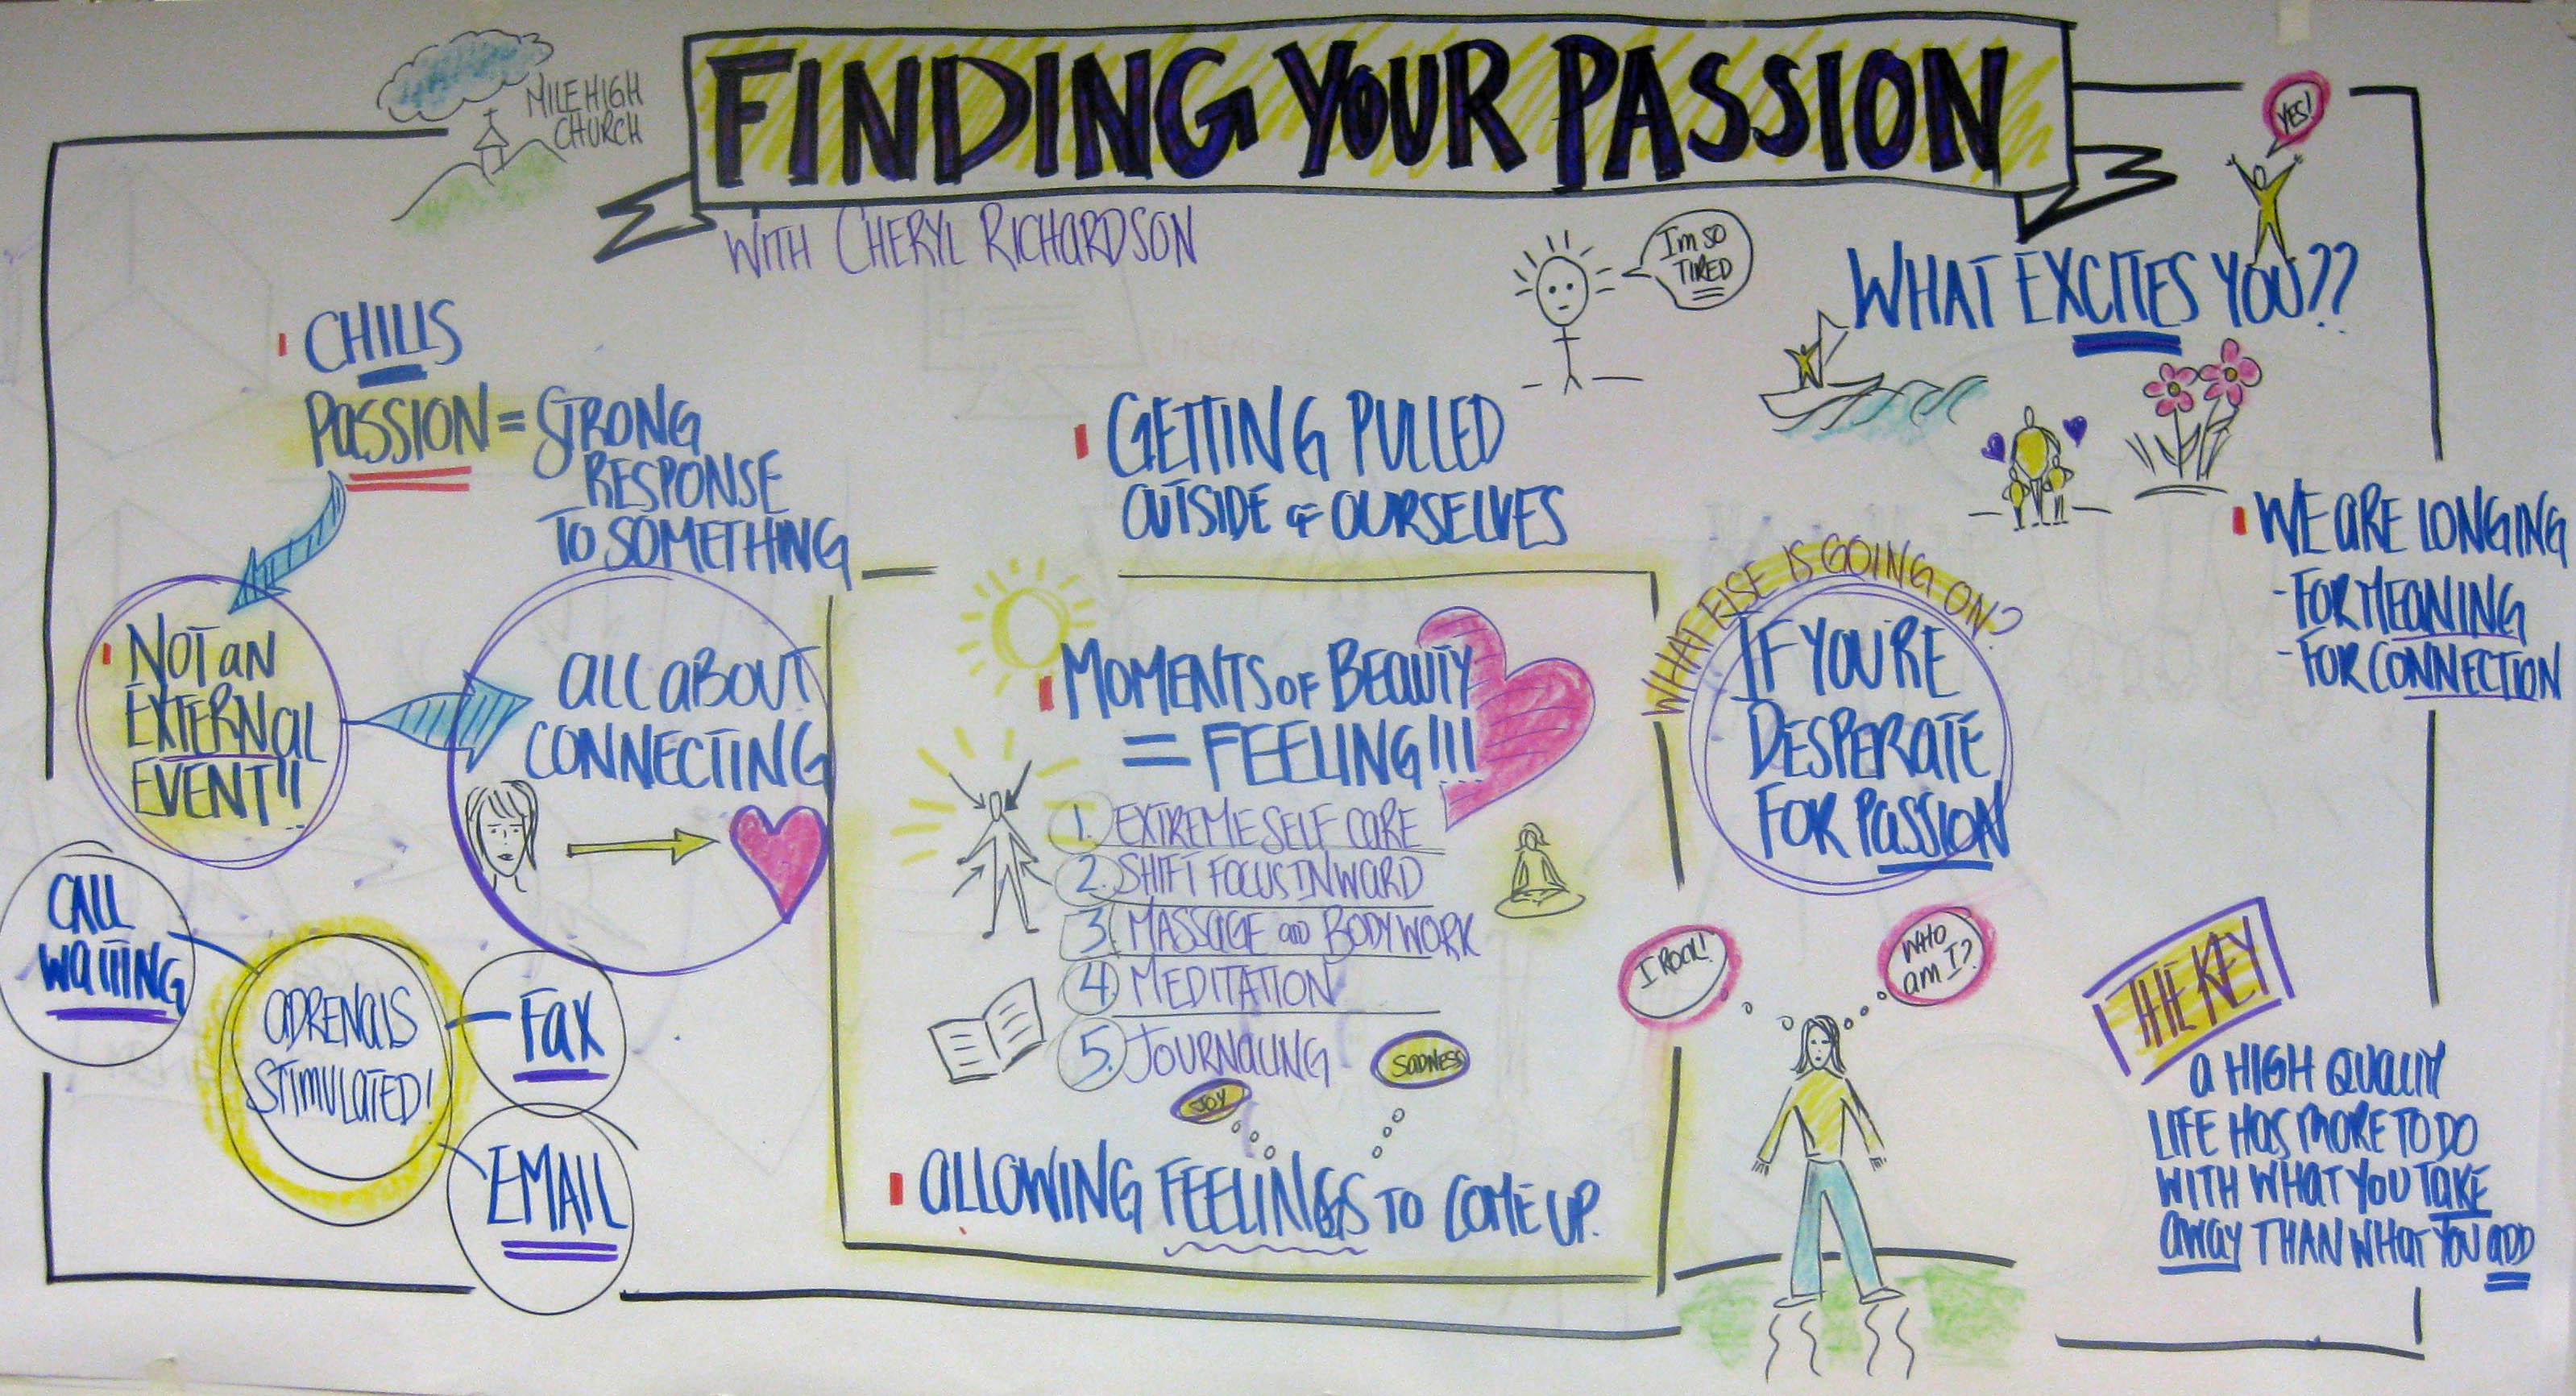 MILE HIGH
CHURCH
FINDING YOUR PASSION
WITH CHERYL RICHARDSON
YES!
I'm SO
TIRED
WHAT EXCITES YOU??
CHILLS
PASSION = STRONG
RESPONSE
TO SOMETHING
NOT AN
EXTERNAL
EVENT!!
ALL ABOUT
CONNECTING
CALL
WAITING
ADRENALS
STIMULATED!
FAX
EMAIL
GETTING PULLED
OUTSIDE OF OURSELVES
MOMENTS OF BEAUTY
= FEELING!!!
1. EXTREME SELF CARE
2. SHIFT FOCUS INWARD
3. MASSAGE AND BODYWORK
4. MEDITATION
5. JOURNALING
JOY
SADNESS
ALLOWING FEELINGS TO COME UP.
WHAT ELSE IS GOING ON?
IF YOU'RE
DESPERATE
FOR PASSION
I ROCK!
WHO
AM I?
WE ARE LONGING
- FOR MEANING
- FOR CONNECTION
THE KEY
A HIGH QUALITY
LIFE HAS MORE TO DO
WITH WHAT YOU TAKE
AWAY THAN WHAT YOU ADD